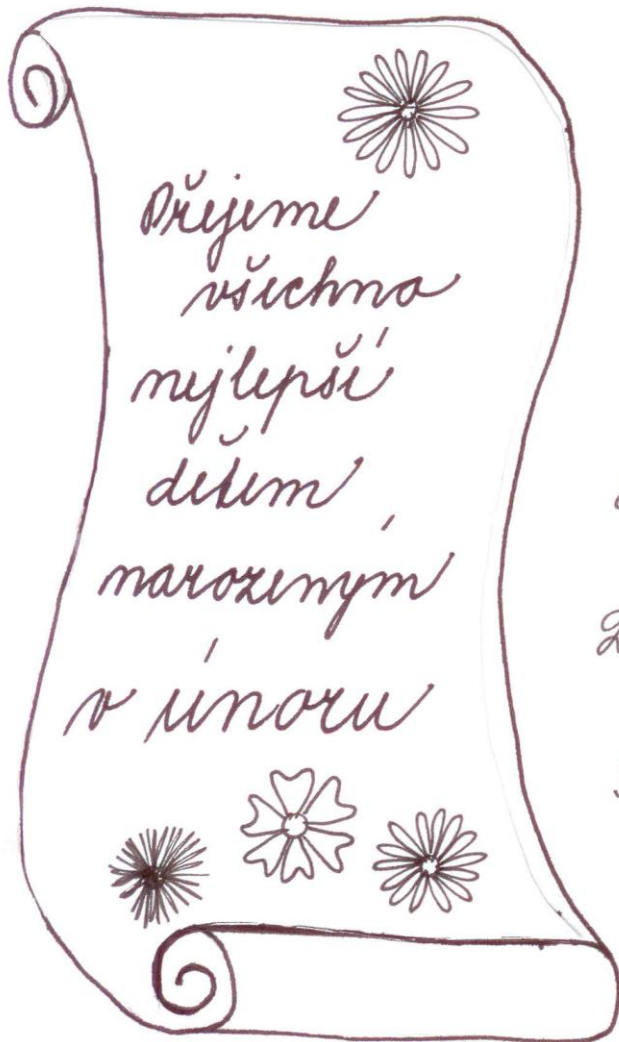 Přejeme
všechno
nejlepší
dětem
narozeným
v únoru